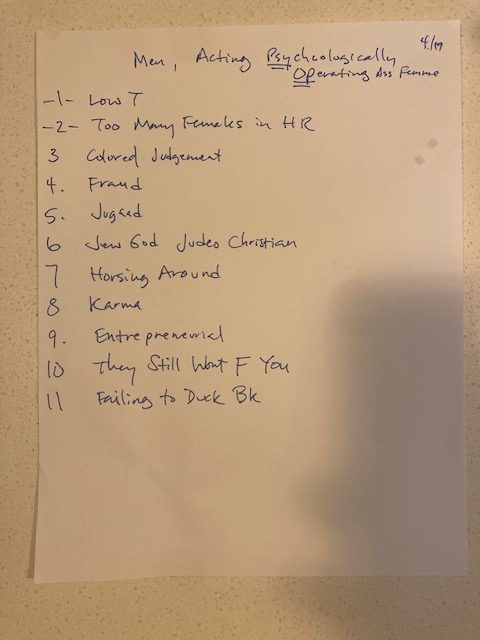 4/19
Men, Acting Psycheologically
OPerating Ass Femme
-1- Low T
-2- Too Many Females in HR
3 Colored Judgement
4. Fraud
5. Jugaad
6 Jew God Judeo Christian
7 Horsing Around
8 Karma
9. Entrepreneurial
10 They Still Wont F You
11 Failing to Duck Bk